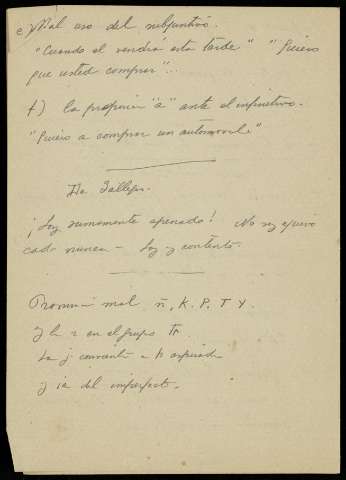 e) Mal uso del subjuntivo.
"Cuando el vendrá esta tarde" "Quiero
que usted comprar"..
f) la preposición "a" ante el infinitivo.
"Quiero a comprar un automovil"
De Gallegos.
¡Soy sumamente apenado! No soy equivo
cado nunca – Soy y contento.
Pronunció mal ñ, K. P. T Y.
y la r en el grupo tr
La j convierte a h aspirada
y ia del imperfecto.